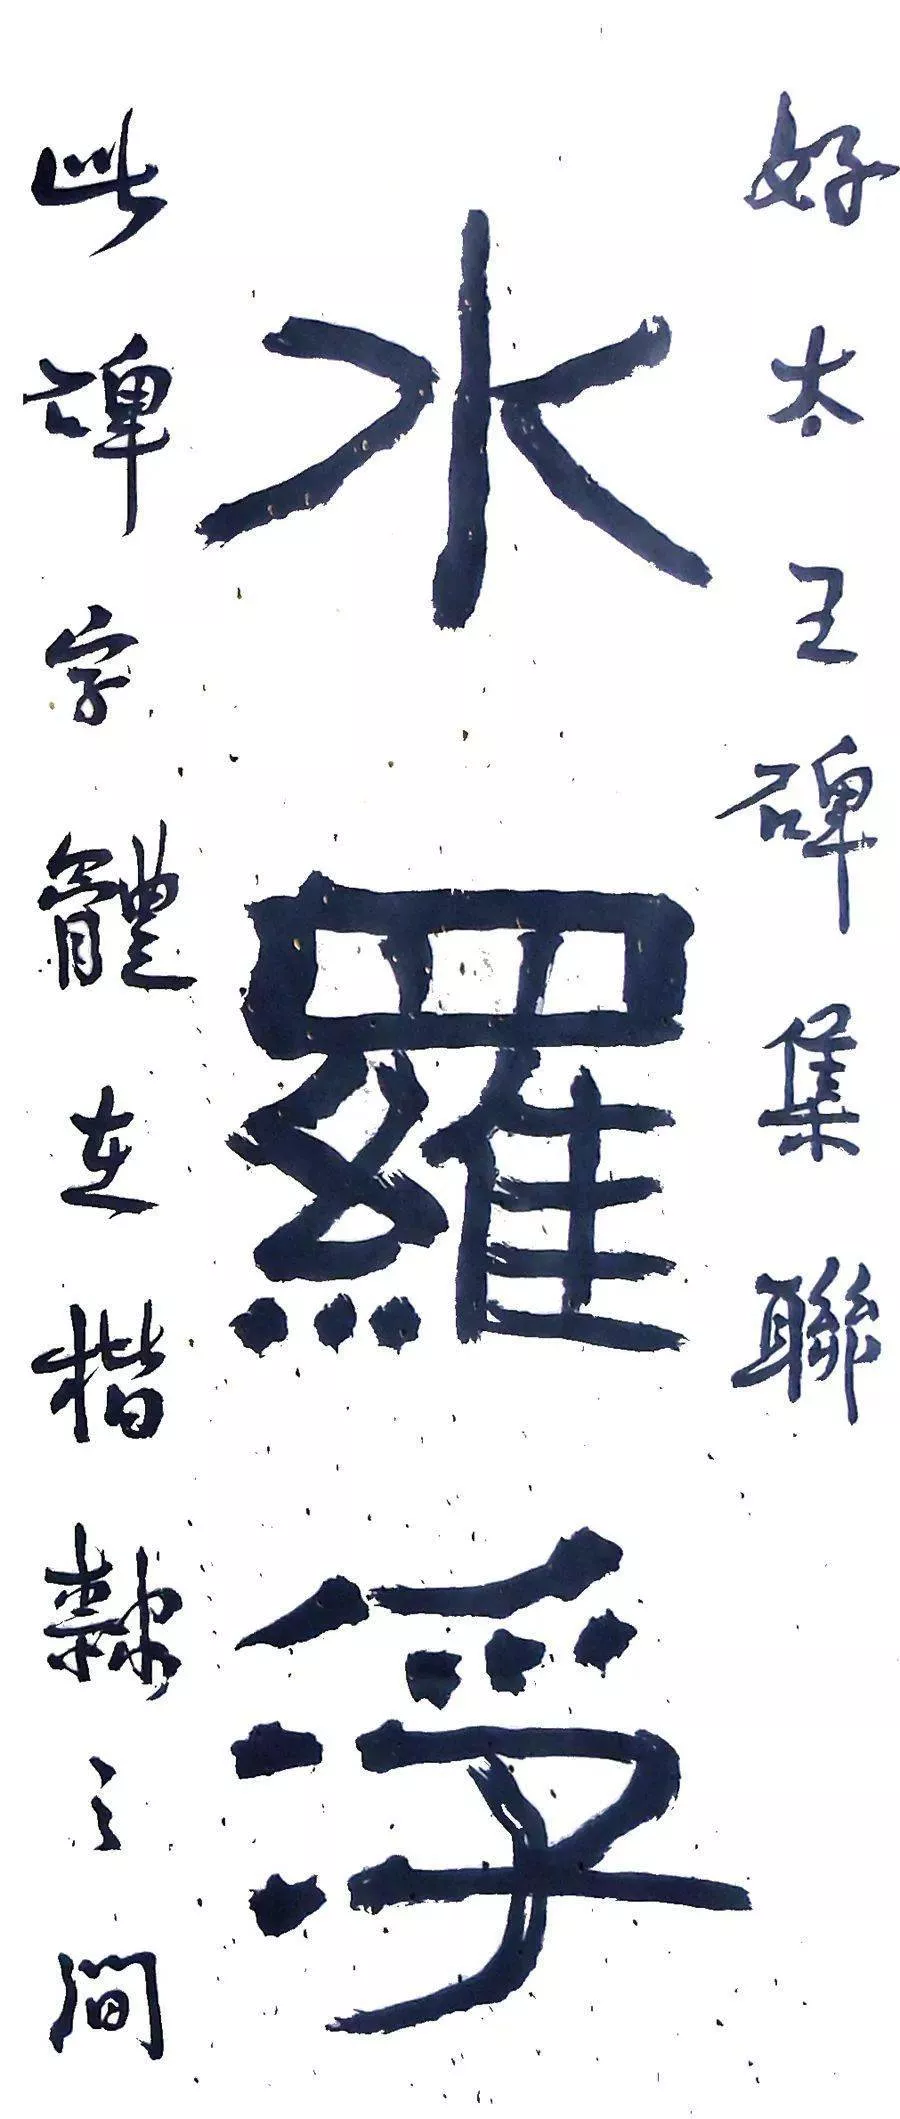 好太王碑集聯
水羅浮
此碑字體在楷隸之間